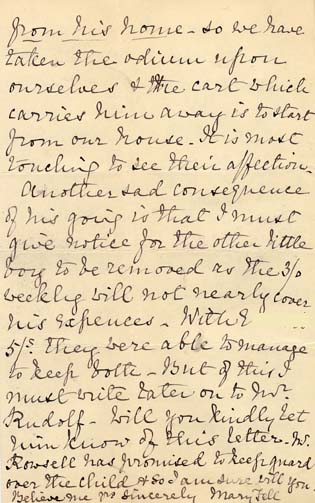 from his home - so we have
taken the odium upon
ourselves & the cart which
carries him away is to start
from our house - It is most
touching to see their affection -
Another sad consequence
of his going is that I must
give notice for the other little
boy to be removed as the 3/0
weekly will not nearly cover
his expences - With
5/s. they were able to manage
to keep both - But of this I
must write later on to Mr.
Rudolf - Will you kindly let
him know of this letter - Mr.
Rowsell has promised to keep guard
over the child & so I am sure will you.
Believe me yrs sincerely Mary